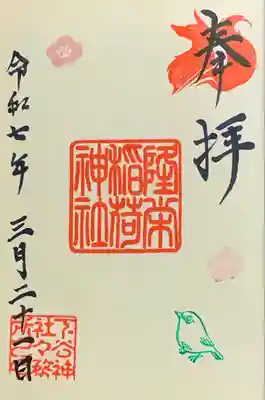 奉拝
隆栄
稲荷
神社
令和七年 三月二十一日
下谷神
社々務